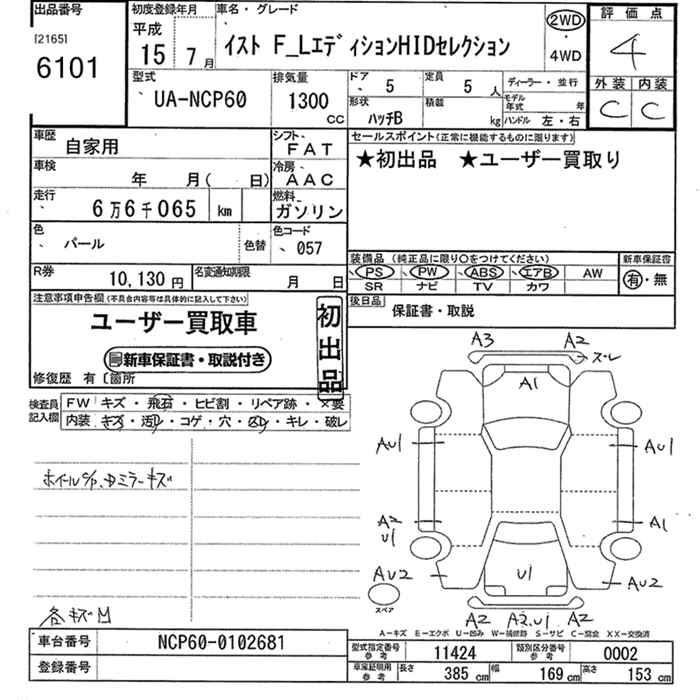 出品番号
[2165]
6101
初度登録年月
平成
15 7月
車名・グレード
イスト F_LエディションHIDセレクション
2WD
・
4WD
評価点
4
外装 内装
C C
型式
UA-NCP60
排気量
1300
CC
ドア
5
定員
5 人
形状
ハッチB
積載
kg
ディーラー・並行
モデル年式 年
ハンドル 左・右
車歴
自家用
シフト
FAT
車検
年 月( 日)
冷房
AAC
走行
6万6千065 km
燃料
ガソリン
色
パール
色替
色コード
057
R券
10,130円
名変通知期限
月 日
セールスポイント(正常に機能するものに限ります)
★初出品 ★ユーザー買取り
装備品 (純正品に限り○をつけてください)
PS PW ABS エアB AW
SR ナビ TV カワ
新車保証書
有・無
後日品
保証書・取説
注意事項申告欄(不具合内容等は具体的に記入して下さい)
ユーザー買取車
新車保証書・取説付き
初出品
修復歴 有〔箇所
検査員記入欄
FW キズ・飛石・ヒビ割・リペア跡・×要
内装 キズ・汚れ・コゲ・穴・凹み・キレ・破レ
各キズ凹
A3 A2
ズレ
A1
AU1 AU1
A2
U1
A1
AU2
スペア
U1
AU2
A2 A2.U1 A2
A-キズ E-エクボ U-凹み W-補修跡 S-サビ C-腐食 XX-交換済
車台番号
NCP60-0102681
登録番号
型式指定番号
参考
11424
類別区分番号
参考
0002
車庫証明用
参考
長さ 385 cm
幅 169 cm
高さ 153 cm